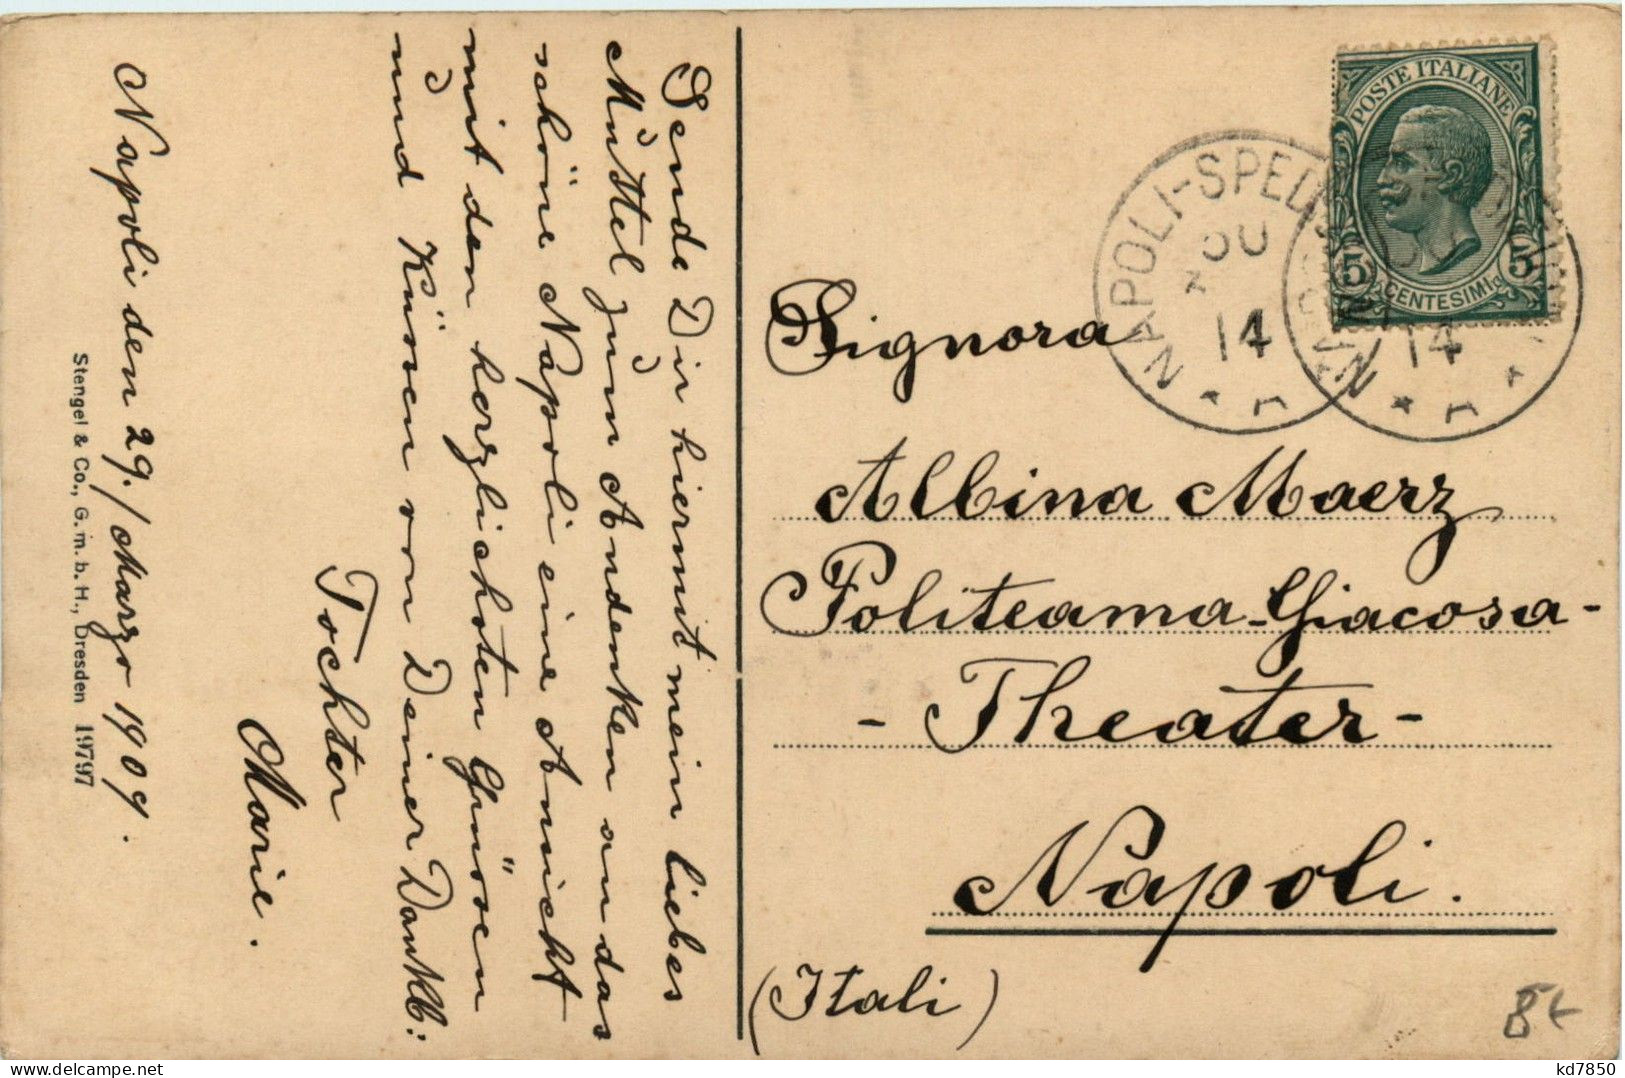 Sende Dir hiermit mein liebes
Muttel zum Andenken an das
schöne Napoli eine Ansicht
mit den herzlichsten Grüssen
und Küssen von Deiner Dankb:
Tochter
Marie.
Napoli den 29./Marzo 1909.
Stengel & Co., G.m.b.H., Dresden 19797
POSTE ITALIANE
5 5
CENTESIMI
NAPOLI-SPED
14
14
Signora
Albina Maerz
Politeama-Giacosa-
- Theater -
Napoli.
(Itali)
8€
kd7850